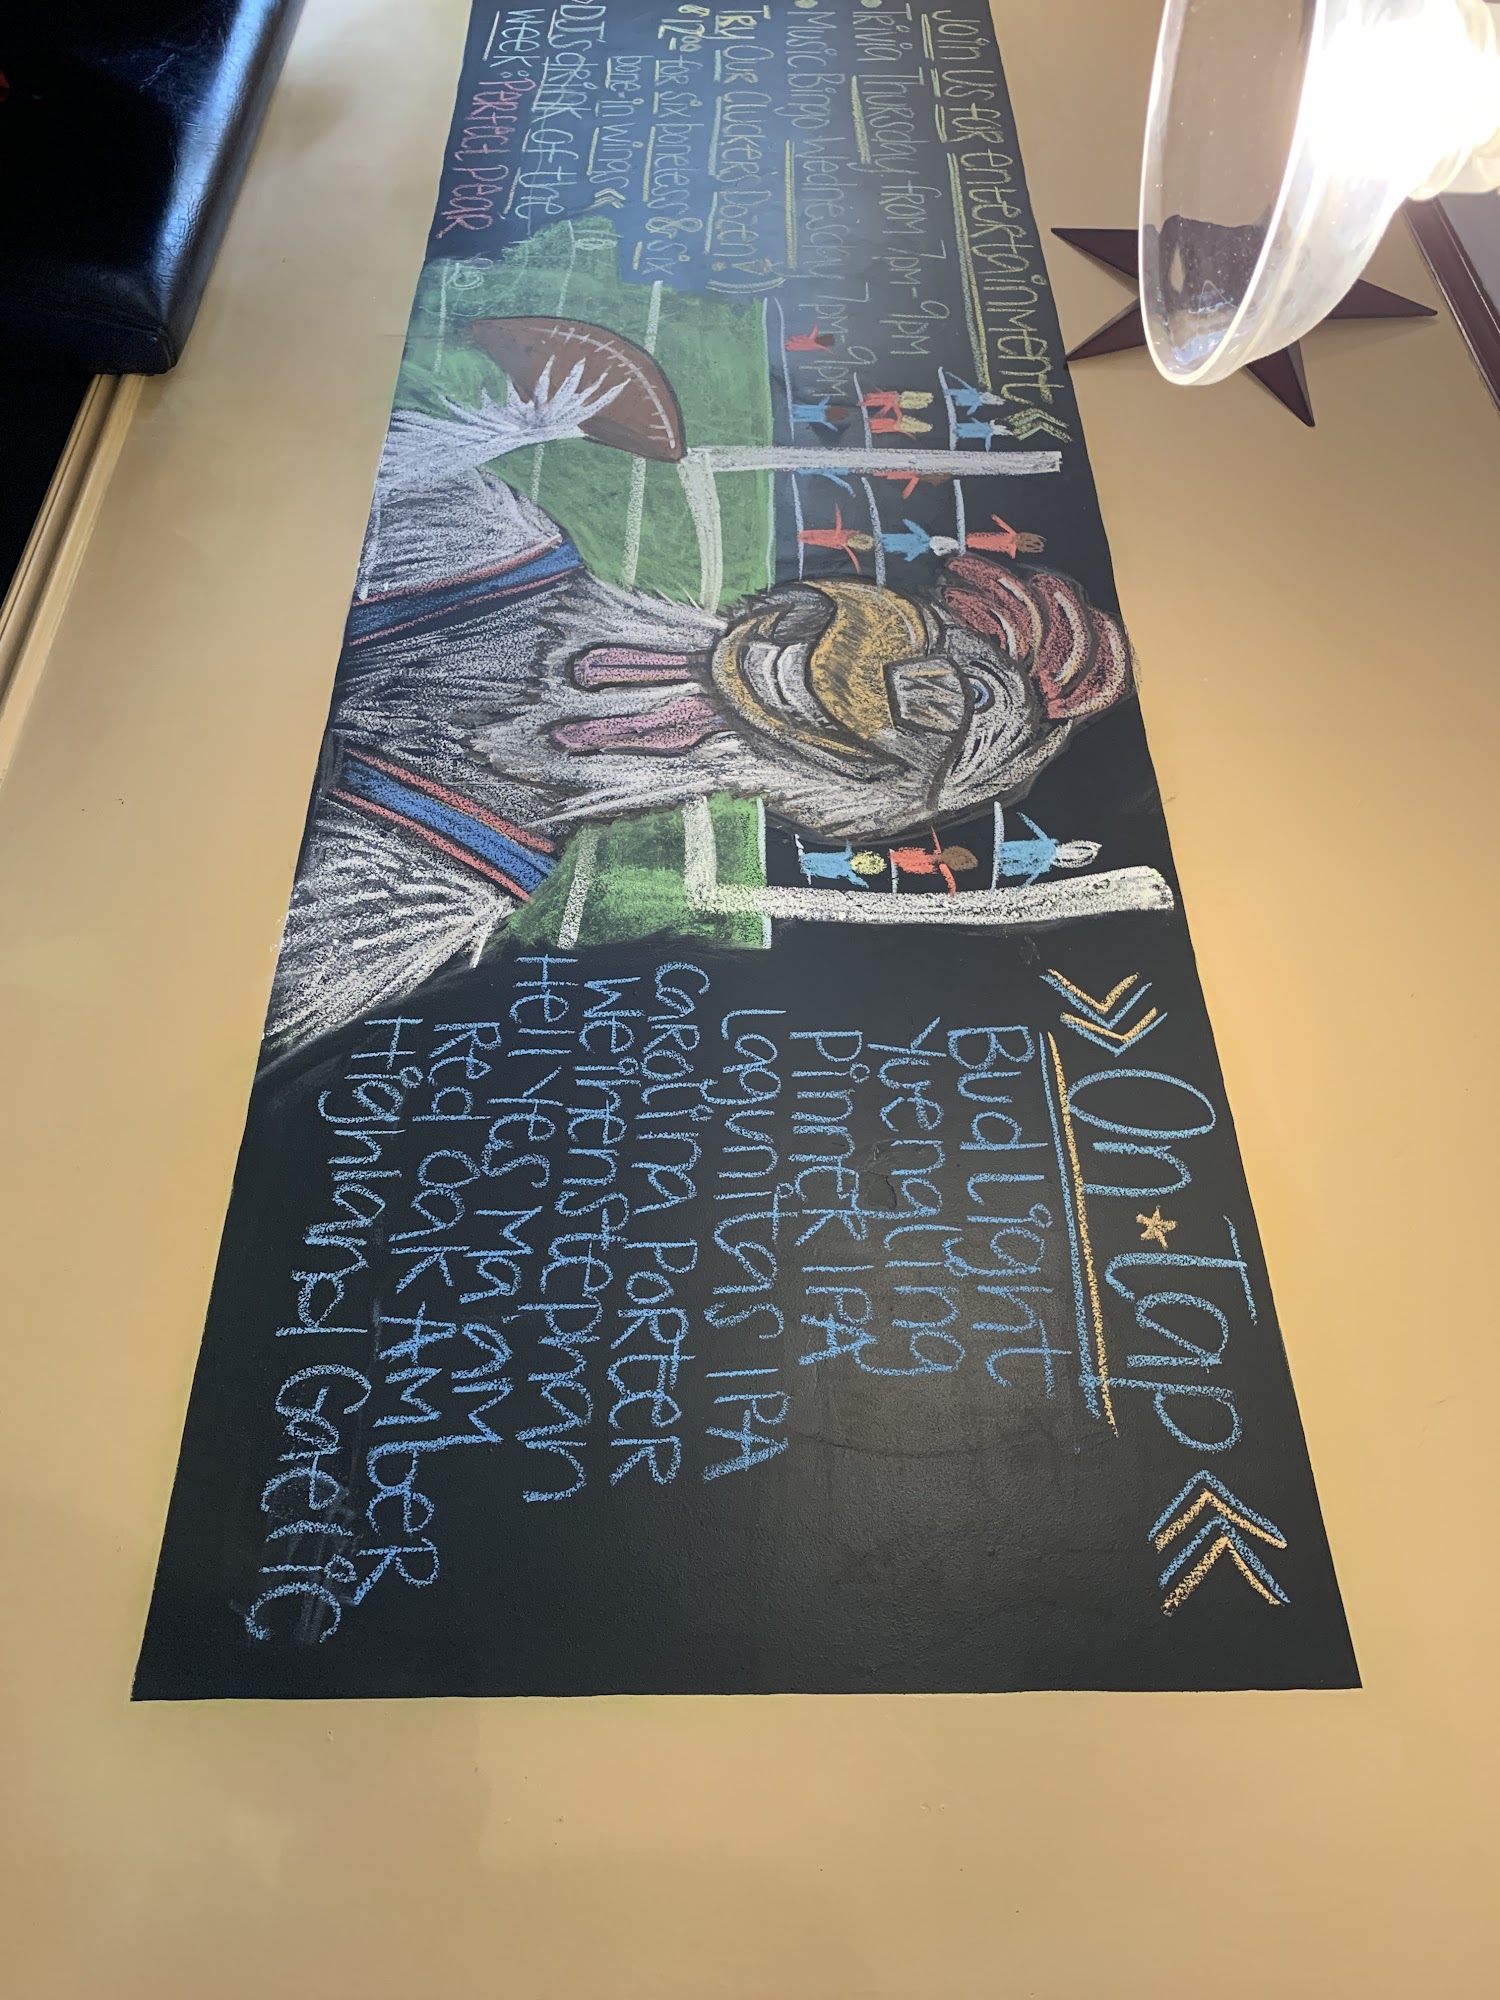 Join us for entertainment <<
• Trivia Thursday from 7pm-9pm
• Music Bingo Wednesday 7pm-9pm
Try Our Cluckers Dozen
$12.00 for six boneless & six
bone-in wings <<
DJ's drink of the
week: Perfect Pear
>> On ★ Tap <<
Bud Light
Yuengling
Pinner IPA
Lagunitas IPA
Carolina Porter
Weihenstephan
Hell yes Ma am
Red oak Amber
Highland Gaelic